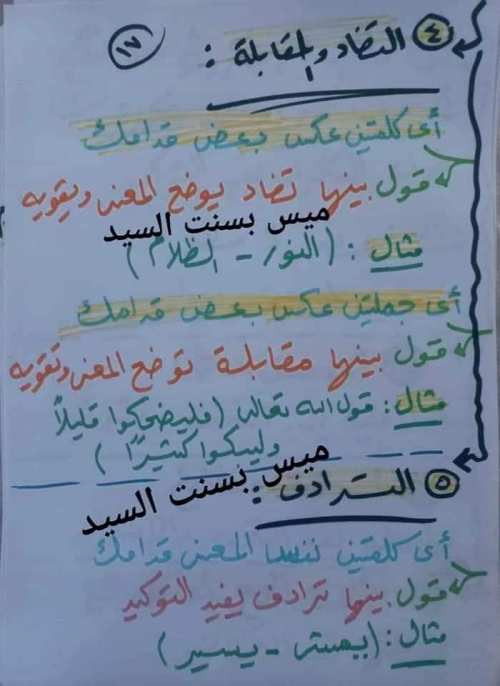 ④ التضاد والمقابلة : ⑰
أى كلمتين عكس بعض قدامك
قول بينها تضاد يوضع المعنى ويقويه
ميس بسنت السيد
مثال : (النور - الظلام)
أى جملتين عكس بعض قدامك
قول بينها مقابلة توضع المعنى وتقويه
مثال : قول الله تعالى (فليضحكوا قليلاً
وليبكوا كثيرًا)
ميس بسنت السيد
⑤ الترادف :
أى كلمتين نفس المعنى قدامك
قول بينها ترادف يفيد التوكيد
مثال : ( - يسير)